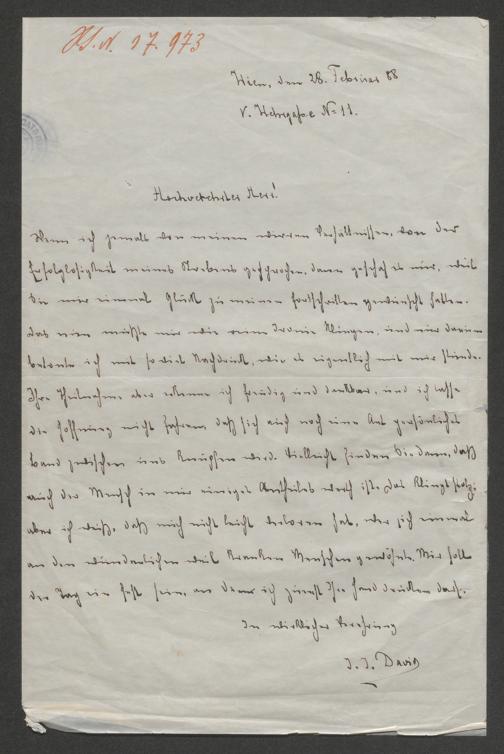 H.I.N. 17.973
Wien, den 28. Februar 88
V. Wehrgasse No 11.
Hochverehrter Herr!
Wenn ich jemals von meinen wirren Verhältnissen, von der
Erfolglosigkeit meines Strebens gesprochen, dann geschah es nur, weil
Sie mir einmal Glück zu meinen Fortschritten gewünscht hatten.
Das nun müßte mir wie reine Ironie klingen, und nur darum
betonte ich mit soviel Nachdruck, wie es eigentlich mit mir stünde.
Ihre Theilnahme aber erkenne ich freudig und dankbar, und ich lasse
die Hoffnung nicht fahren, daß sich auch noch eine Art persönliches
Band zwischen uns knüpfen wird. Vielleicht finden Sie dann, daß
auch der Mensch in mir einiges Antheiles werth ist. Das klingt stolz;
aber ich weiß, daß mich nicht leicht verloren hat, wer sich einmal
an den wunderlichen weil kranken Menschen gewöhnte. Mir soll
der Tag ein Fest sein, an dem ich zuerst Ihre Hand drücken darf.
In wirklicher Verehrung
J. J. David